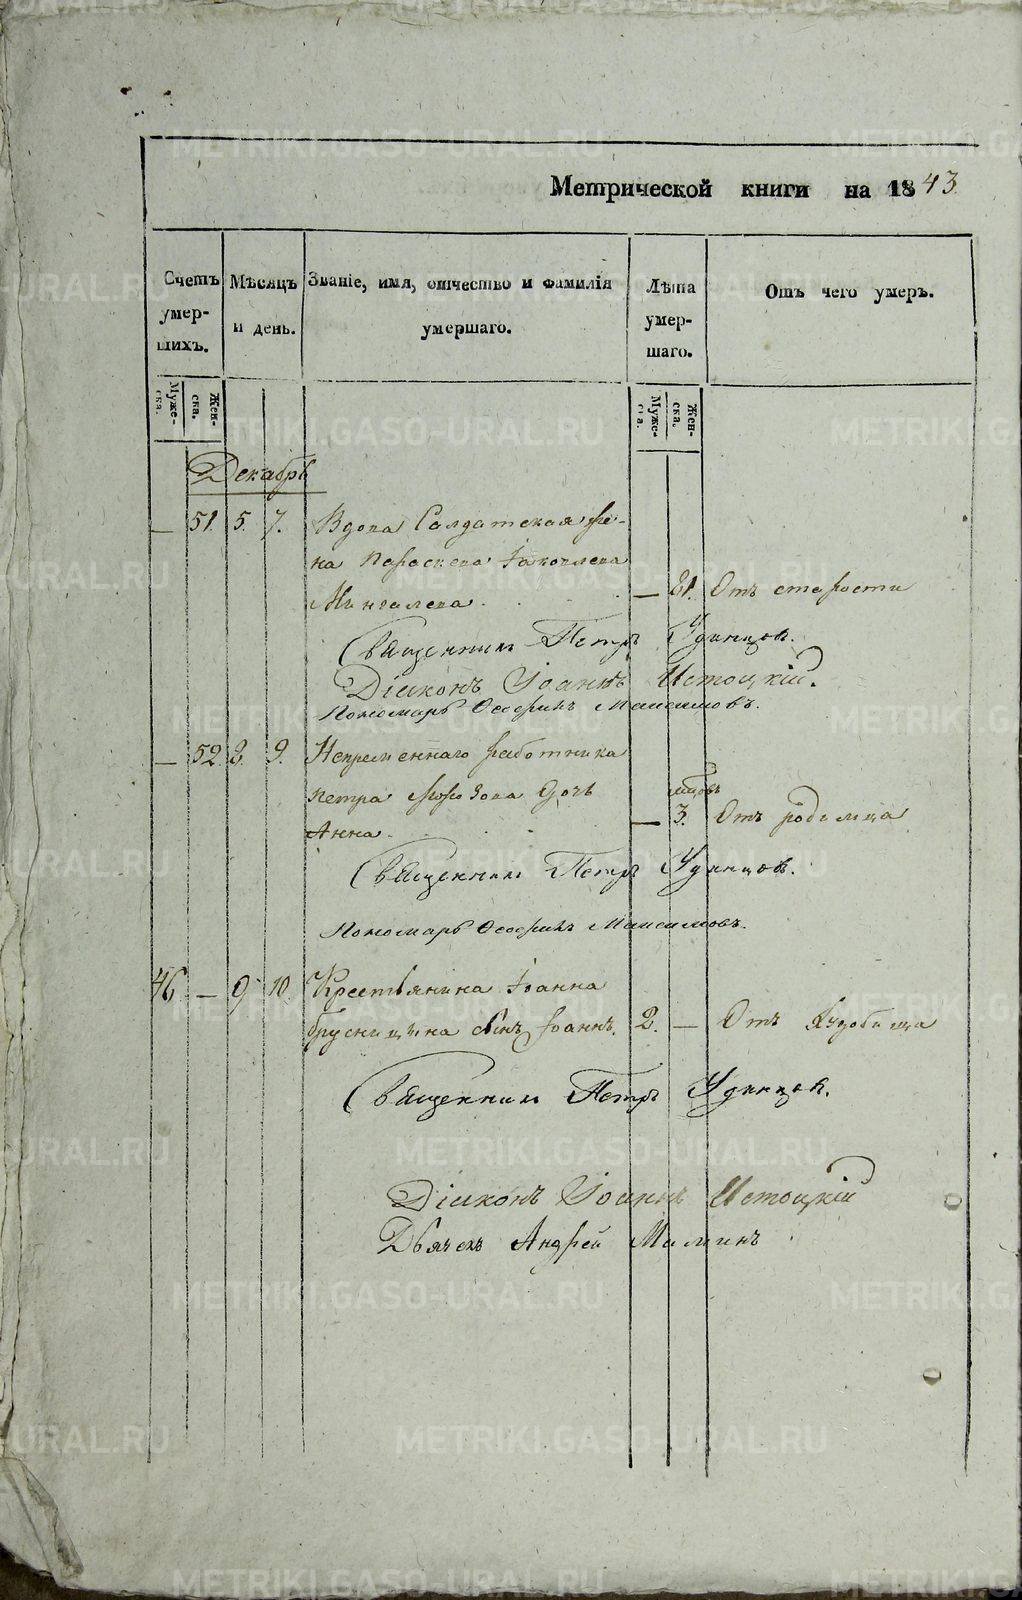 Метрической книги на 1843.
Счетъ умер-шихъ.
Мѣсяцъ и день.
Званіе, имя, отчество и фамилія умершаго.
Лѣта умер-шаго.
Отъ чего умеръ.
Муже-ска.
Жен-ска.
Муже-ска.
Жен-ска.
Декабрь
— 51. 5. 7. Вдова Солдатская же-
на Параскева Іаковлева
Мингалева. — 81. Отъ старости
Священникъ Петръ Удинцов.
Діаконъ Іоаннъ Истоцкій.
Пономарь Ѳеофилъ Максимовъ.
— 52. 8. 9. Непременнаго работника
Петра Морозова дочь мѣсяцовъ
Анна. — 3. Отъ родимца
Священникъ Петръ Удинцов.
Пономарь Ѳеофилъ Максимовъ.
46. — 9 10. Крестьянина Іоанна
Брусницына сынъ Іоаннъ. 2. — Отъ худобища
Священникъ Петръ Удинцов.
Діаконъ Іоаннъ Истоцкій
Дьячекъ Андрей Маминъ
METRIKI.GASO-URAL.RU